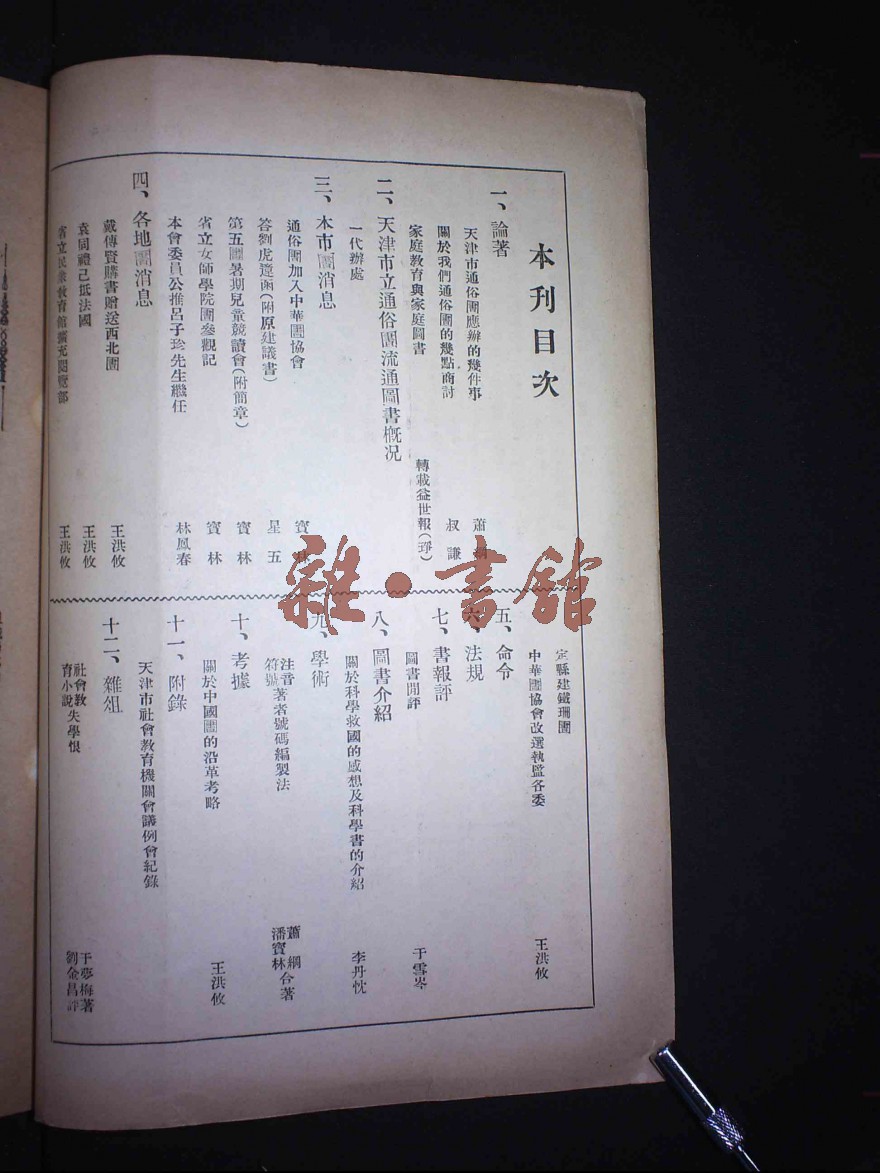 本刊目次
一、論著
天津市通俗圕應辦的幾件事 蕭綱
關於我們通俗圕的幾點商討 叔謙
家庭教育與家庭圖書 轉載益世報(琤)
二、天津市立通俗圕流通圖書概况
一代辦處
三、本市圕消息
通俗圕加入中華圕協會 寶林
答劉虎躉函(附原建議書) 星五
第五圕暑期兒童競讀會(附簡章) 寶林
省立女師學院圕參觀記 寶林
本會委員公推呂子珍先生繼任 林鳳春
四、各地圕消息
戴傳賢購書贈送西北圕 王洪攸
袁同禮已抵法國 王洪攸
省立民衆教育館擴充閱覽部 王洪攸
定縣建鐵珊圕
中華圕協會改選執監各委 王洪攸
五、命令
六、法規
七、書報評
圖書閒評 于雪岑
八、圖書介紹
關於科學救國的感想及科學書的介紹 李丹忱
九、學術
注音符號著者號碼編製法 蕭綱 潘寶林 合著
十、考據
關於中國圕的沿革考略 王洪攸
十一、附錄
天津市社會教育機關會議例會紀錄
十二、雜俎
社會教育小說 失學恨 于夢梅著 劉金昌評
雜·書館